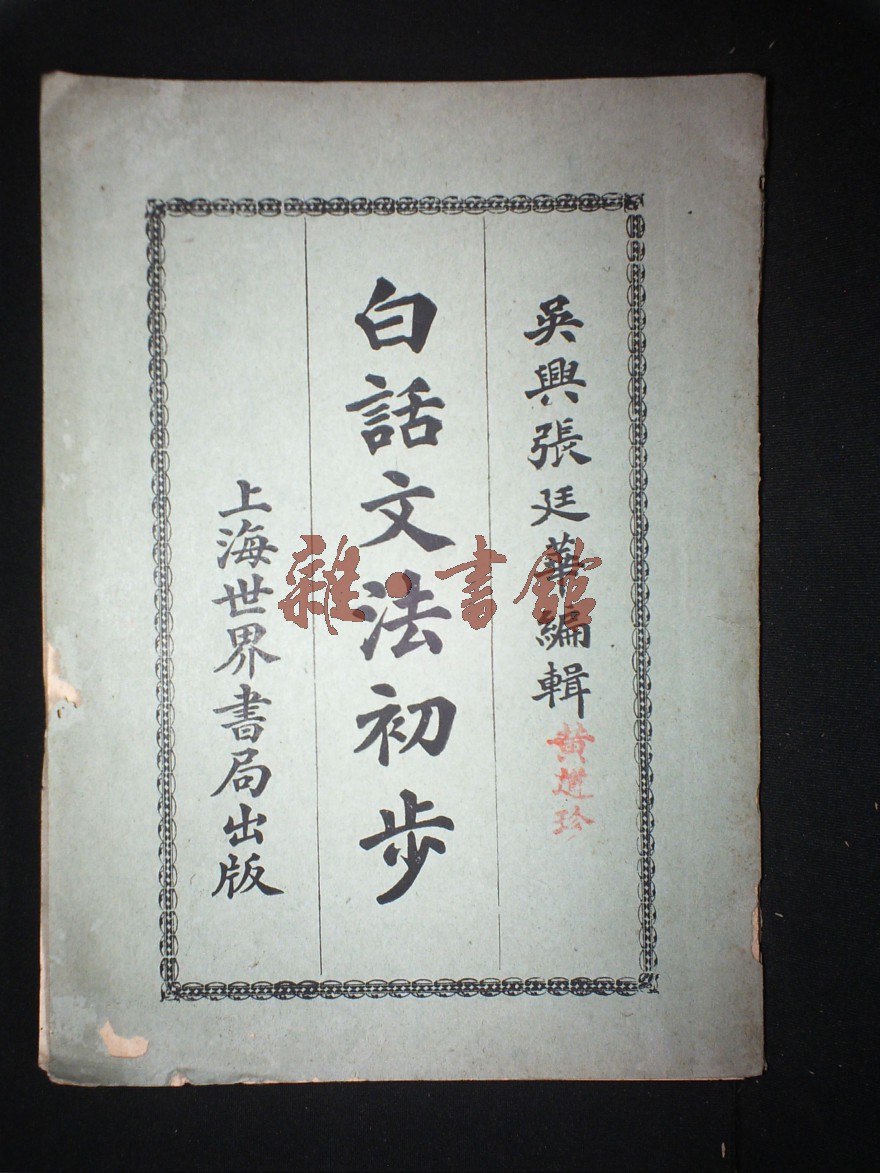 吳興張廷華編輯
黄進珍
白話文法初步
上海世界書局出版
雜·書館